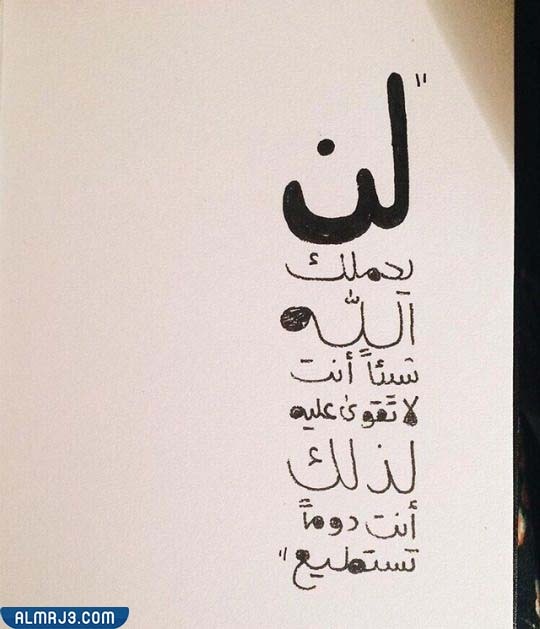 " لن
يحملك
الله
شيئاً أنت
لا تقوىٰ عليه
لذلك
أنت دوماً
تستطيع "
ALMRJ3.COM